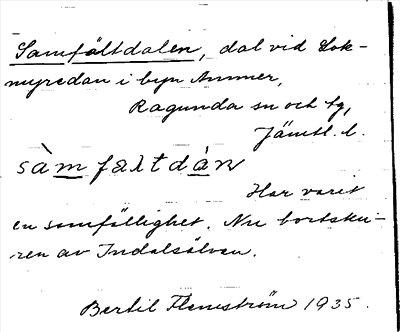 Samfältdalen, dal vid Lok-
myredan i byn Ammer,
Ragunda sn och tg,
Jämtl. l.
sàmfæltdàn
Har varit
en samfällighet. Nu bortsku-
ren av Indalsälven.
Bertil Flemström 1935.